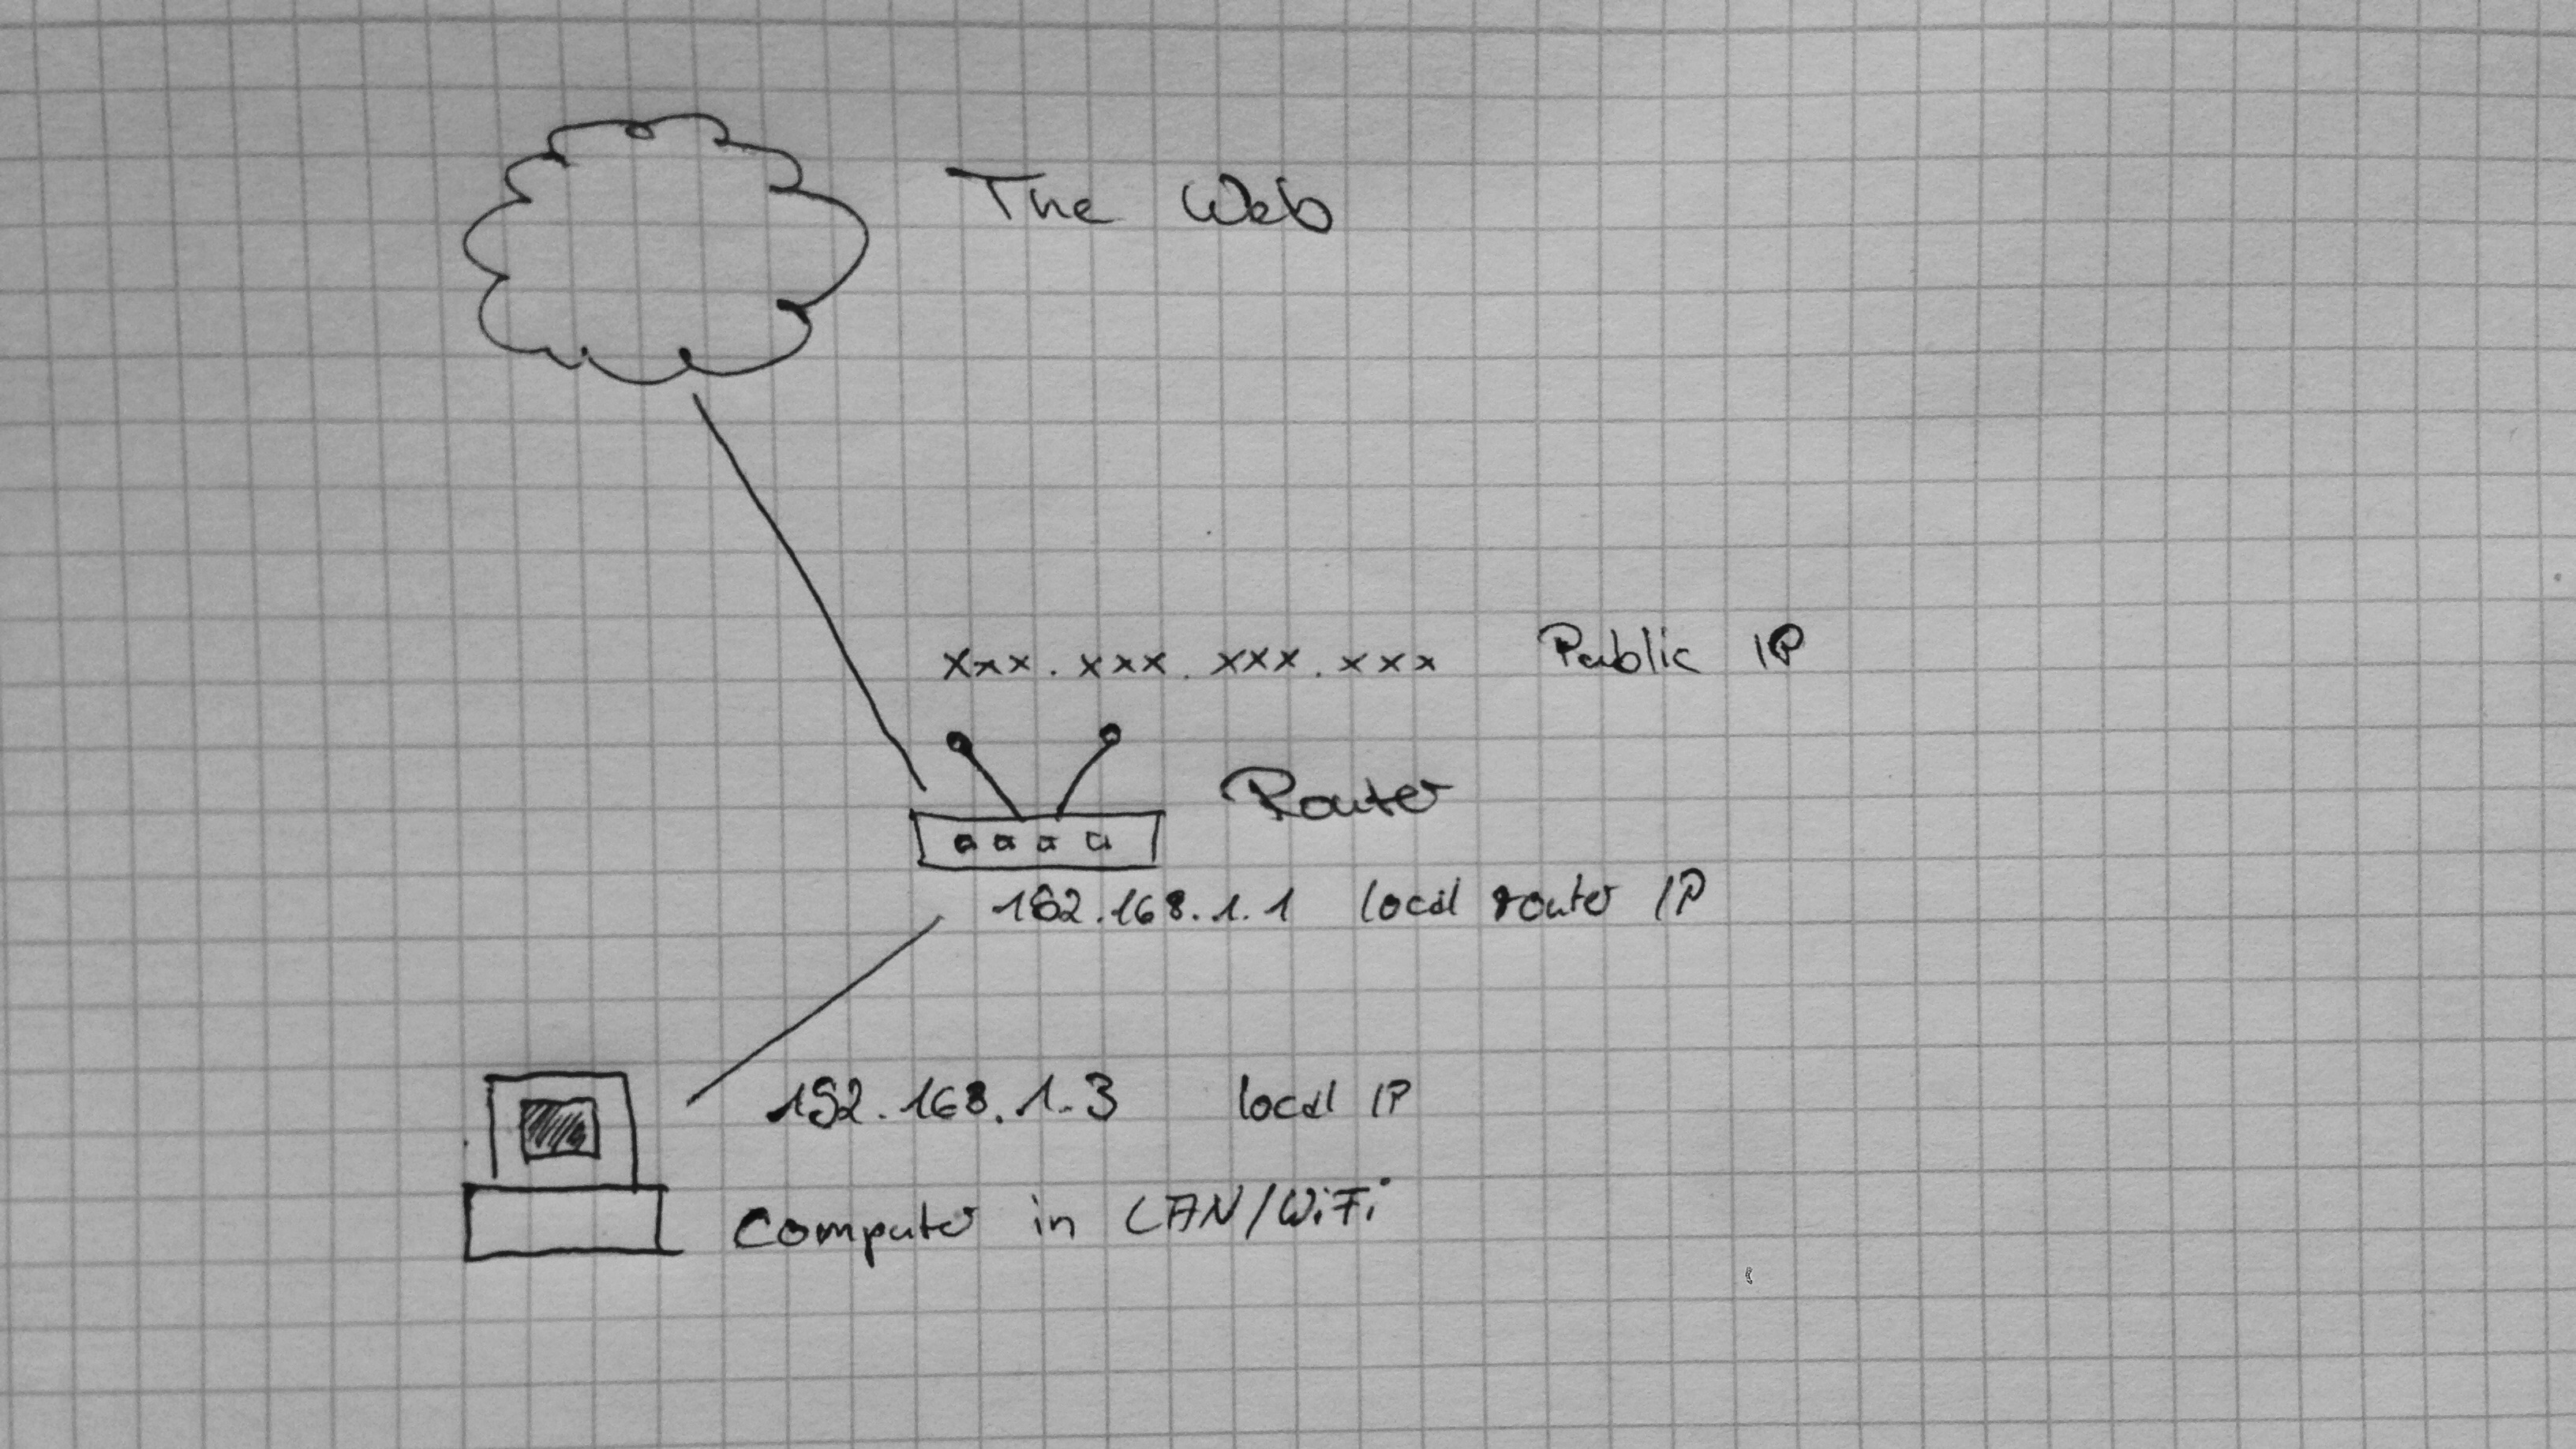 The Web
xxx.xxx.xxx.xxx Public IP
Router
192.168.1.1 local router IP
192.168.1.3 local IP
Computer in LAN/WiFi